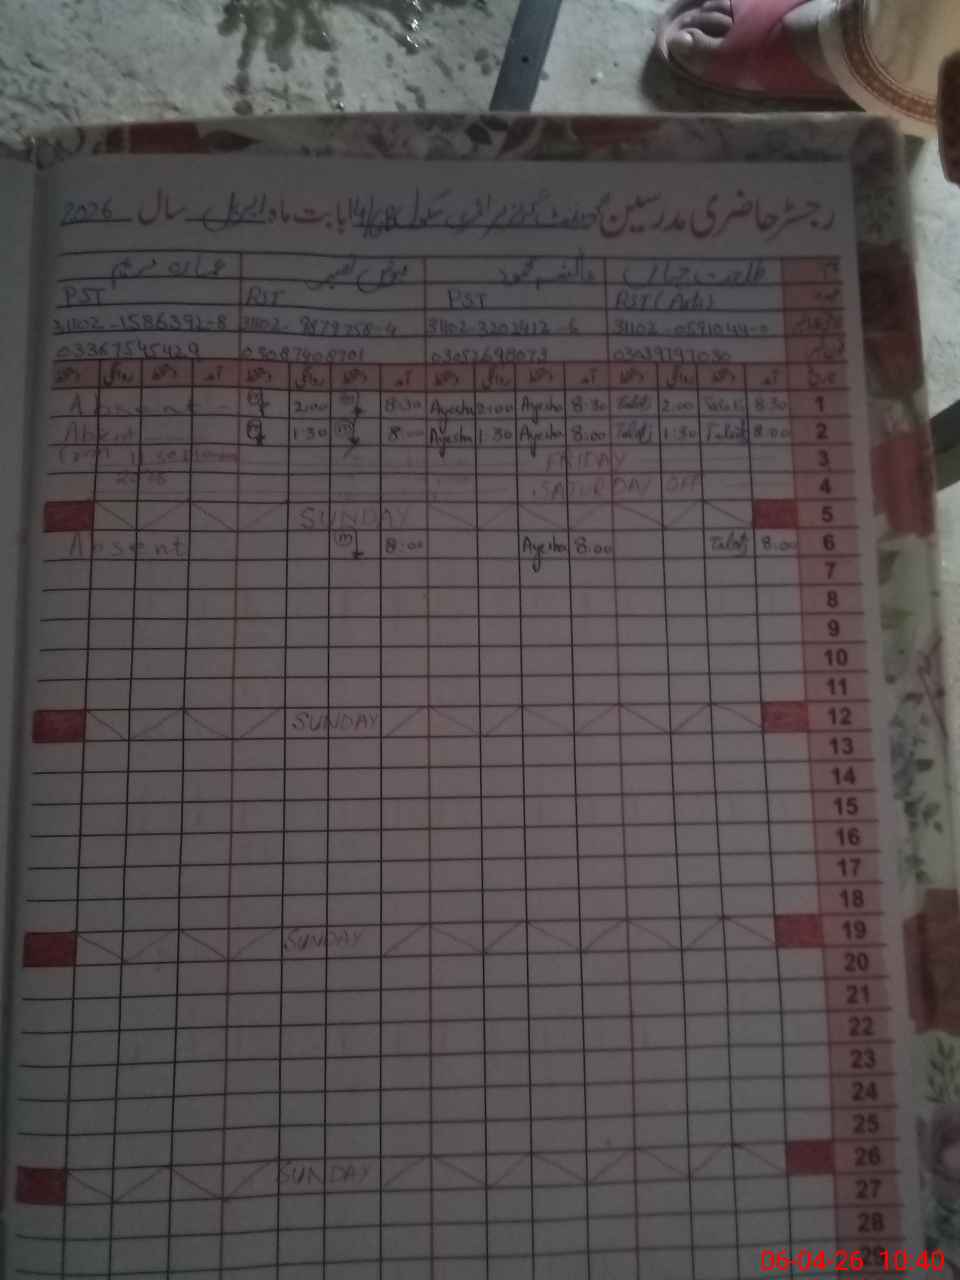 رجسٹر حاضری مدرسین گورنمنٹ گرلز پرائمری سکول بابت ماہ اپریل سال 2026
طلعت جہاں
PST RST PST RST (Arb)
31102-1586392-8 31102-9879758-4 31102-3202412-6 31102-0591044-0
03367545429 03087408701 03057698073 03039797030
آمد دستخط روانگی دستخط آمد دستخط روانگی دستخط آمد دستخط روانگی دستخط آمد دستخط روانگی دستخط
Absent 2:00 8:30 Ayesha 2:00 Ayesha 8:30 Talat 2:00 Talat 8:30 1
Absent 1:30 8:00 Ayesha 1:30 Ayesha 8:00 Talat 1:30 Talat 8:00 2
FRIDAY 3
SATURDAY OFF 4
SUNDAY 5
Absent 8:00 Ayesha 8:00 Talat 8:00 6
7
8
9
10
11
SUNDAY 12
13
14
15
16
17
18
SUNDAY 19
20
21
22
23
24
25
SUNDAY 26
27
28
29
06-04-26 10:40